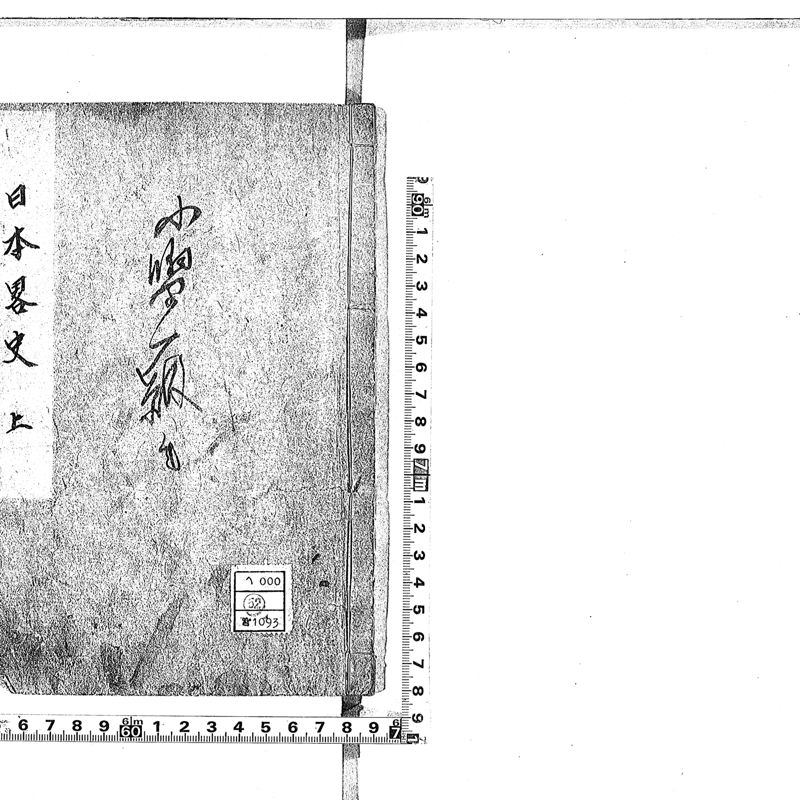 小學
日本畧史 上
000
1093
6m
90 1 2 3 4 5 6 7 8 9 7m 1 2 3 4 5 6 7 8 9
6 7 8 9 60 1 2 3 4 5 6 7 8 9 7
6m